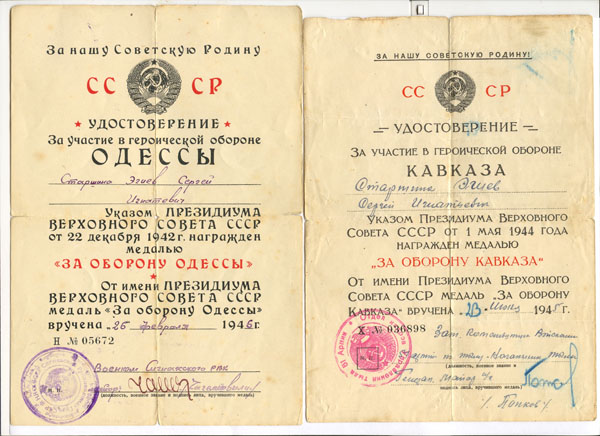 За нашу Советскую Родину
СС СР
УДОСТОВЕРЕНИЕ
За участие в героической обороне
ОДЕССЫ
Старшина Эгиев Сергей
Игнатович
Указом ПРЕЗИДИУМА
ВЕРХОВНОГО СОВЕТА СССР
от 22 декабря 1942 г. награжден
медалью
«ЗА ОБОРОНУ ОДЕССЫ»
От имени ПРЕЗИДИУМА
ВЕРХОВНОГО СОВЕТА СССР
медаль «За оборону Одессы»
вручена „26 февраля 1946 г.
Н № 05672
Военком Сигнахского РВК
(должность, военное звание и подпись лица, вручившего медаль)
ЗА НАШУ СОВЕТСКУЮ РОДИНУ!
СС СР
УДОСТОВЕРЕНИЕ
ЗА УЧАСТИЕ В ГЕРОИЧЕСКОЙ ОБОРОНЕ
КАВКАЗА
Старшина Эгиев
Сергей Игнатьевич
УКАЗОМ ПРЕЗИДИУМА ВЕРХОВНОГО
СОВЕТА СССР ОТ 1 МАЯ 1944 ГОДА
НАГРАЖДЕН МЕДАЛЬЮ
„ЗА ОБОРОНУ КАВКАЗА"
ОТ ИМЕНИ ПРЕЗИДИУМА ВЕРХОВНОГО
СОВЕТА СССР МЕДАЛЬ „ЗА ОБОРОНУ
КАВКАЗА" ВРУЧЕНА „23 1945 г.
Х № 036898
Зам.
по тылу
(должность, военное звание и
подпись лица, вручившего медаль)
/ Попков /